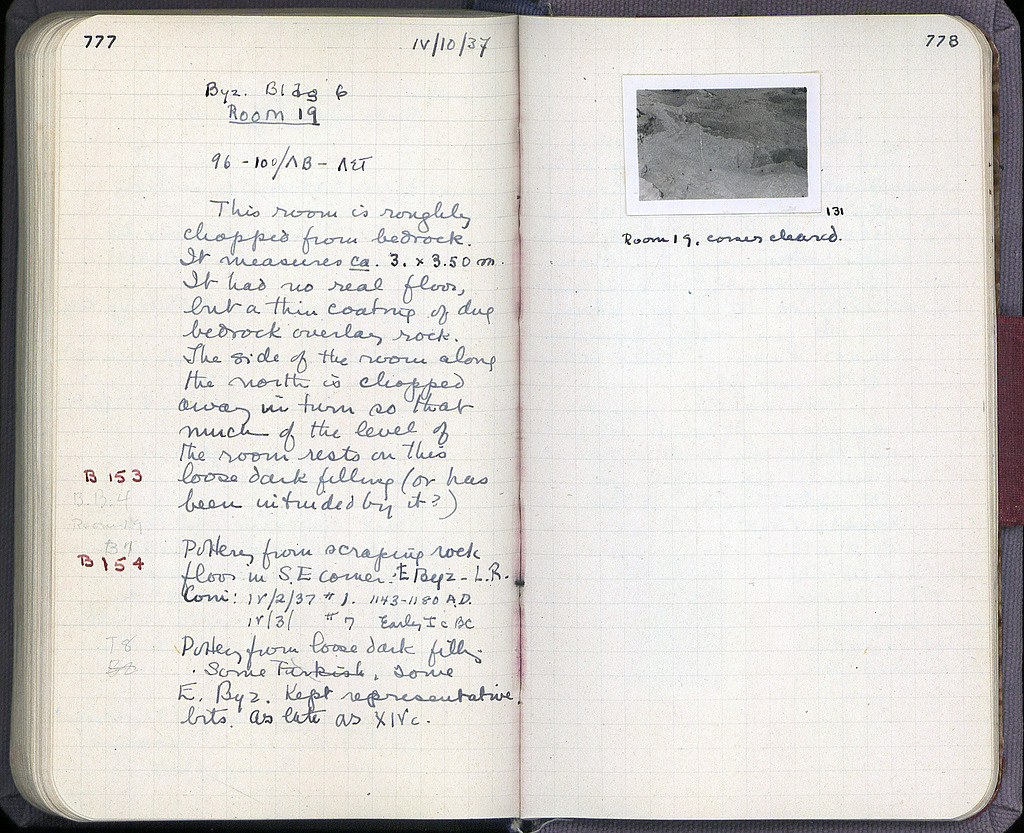 777
IV/10/37
Byz. Bldg 6
Room 19
96 - 100/ΛB - ΛΣΤ
This room is roughly
chopped from bedrock.
It measures ca. 3. x 3.50 m.
It had no real floor,
but a thin coating of dug
bedrock overlay rock.
The side of the room along
the north is chopped
away in turn so that
much of the level of
the room rests on this
B 153
loose dark filling (or has
B.B.4
been intruded by it?)
Room 19
B7
Pottery from scraping rock
B 154
floor in S.E corner: E Byz - L.R.
Coin: IV/2/37 #1. 1143-1180 A.D.
IV/3/ #7 Early I c BC
T8
Pottery from loose dark filling
. Some Turkish, some
E. Byz. Kept representative
bits. as late as XIV c.
778
131
Room 19, corner cleared.